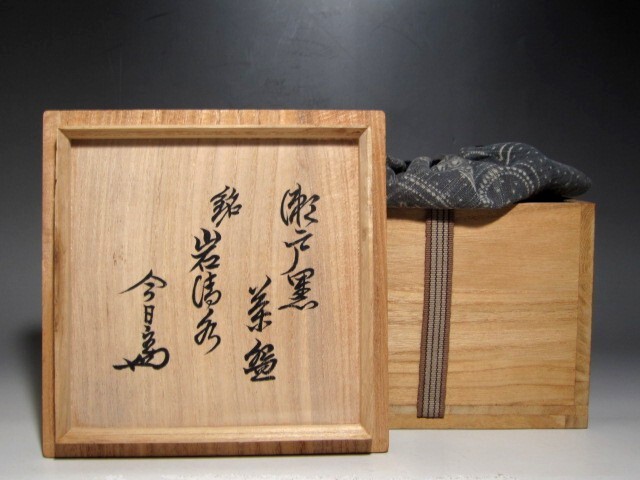 瀬戸黒
茶盌
銘
岩清水
今日庵